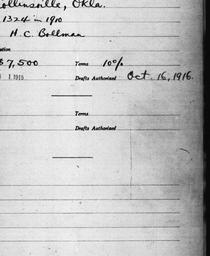 ollinsville, Okla.
1324 in 1910
H. C. Bollman
ation
$7,500 Terms 10%
1 1915 Drafts Authorized Oct. 16, 1916.
Terms
Drafts Authorized